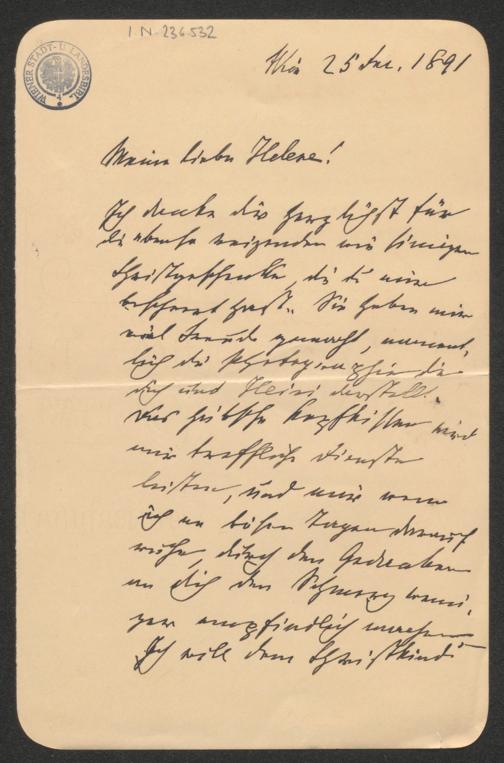 I N - 236.532
WIENER STADT- U. LANDESBIBL.
Wien 25 Dec. 1891
Meine liebe Helene!
Ich danke dir herzlichst für
die ebenso reizenden wie sinnigen
Christgeschenke, die du mir
bescheert hast. Sie haben mir
viel Freude gemacht, nament-
lich die Photographie die
dich und Heini darstellt.
Das hübsche Kopfkissen wird
mir treffliche Dienste
leisten, und mir wenn
ich an bösen Tagen darauf
ruhe, durch den Gedanken
an dich den Schmerz weni-
ger empfindlich machen
Ich will dem Christkindl